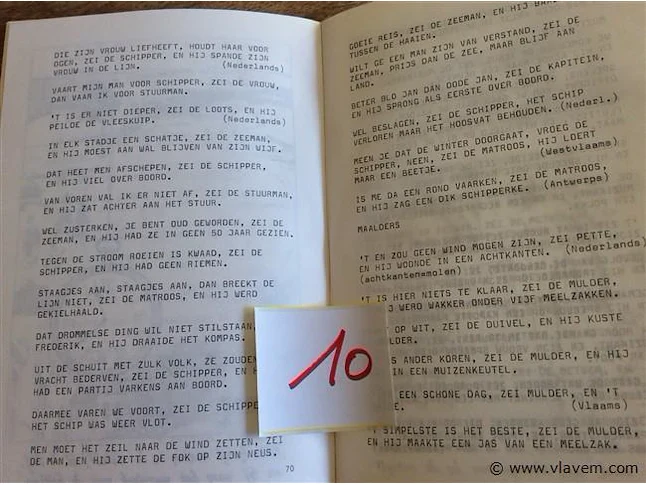 DIE ZIJN VROUW LIEFHEEFT, HOUDT HAAR VOOR
OGEN, ZEI DE SCHIPPER, EN HIJ SPANDE ZIJN
VROUW IN DE LIJN. (Nederlands)
VAART MIJN MAN VOOR SCHIPPER, ZEI DE VROUW,
DAN VAAR IK VOOR STUURMAN.
'T IS ER NIET DIEPER, ZEI DE LOOTS, EN HIJ
PEILDE DE VLEESKUIP. (Nederlands)
IN ELK STADJE EEN SCHATJE, ZEI DE ZEEMAN,
EN HIJ MOEST AAN WAL BLIJVEN VAN ZIJN WIJF.
DAT HEET MEN AFSCHEPEN, ZEI DE SCHIPPER,
EN HIJ VIEL OVER BOORD.
VAN VOREN VAL IK ER NIET AF, ZEI DE STUURMAN,
EN HIJ ZAT ACHTER AAN HET STUUR.
WEL ZUSTERKEN, JE BENT OUD GEWORDEN, ZEI DE
ZEEMAN, EN HIJ HAD ZE IN GEEN 50 JAAR GEZIEN.
TEGEN DE STROOM ROEIEN IS KWAAD, ZEI DE
SCHIPPER, EN HIJ HAD GEEN RIEMEN.
STAAGJES AAN, STAAGJES AAN, DAN BREEKT DE
LIJN NIET, ZEI DE MATROOS, EN HIJ WERD
GEKIELHAALD.
DAT DROMMELSE DING WIL NIET STILSTAAN,
FREDERIK, EN HIJ DRAAIDE HET KOMPAS.
UIT DE SCHUIT MET ZULK VOLK, ZE ZOUDEN
VRACHT BEDERVEN, ZEI DE SCHIPPER, EN
HAD EEN PARTIJ VARKENS AAN BOORD.
DAARMEE VAREN WE VOORT, ZEI DE SCHIPPE
HET SCHIP WAS WEER VLOT.
MEN MOET HET ZEIL NAAR DE WIND ZETTEN, ZEI
DE MAN, EN HIJ ZETTE DE FOK OP ZIJN NEUS.
70
GOEIE REIS, ZEI DE ZEEMAN, EN HIJ
TUSSEN DE HAAIEN.
WILT GE EEN MAN ZIJN VAN VERSTAND, ZEI DE
ZEEMAN, PRIJS DAN DE ZEE, MAAR BLIJF AAN
LAND.
BETER BLO JAN DAN DODE JAN, ZEI DE KAPITEIN,
EN HIJ SPRONG ALS EERSTE OVER BOORD.
WEL BESLAGEN, ZEI DE SCHIPPER, HET SCHIP
VERLOREN MAAR HET HOOSVAT BEHOUDEN. (Nederl.)
MEEN JE DAT DE WINTER DOORGAAT, VROEG DE
SCHIPPER, NEEN, ZEI DE MATROOS, HIJ LOERT
MAAR EEN BEETJE. (Westvlaams)
IS ME DA EEN ROND VAARKEN, ZEI DE MATROOS,
EN HIJ ZAG EEN DIK SCHIPPERKE. (Antwerps)
MAALDERS
'T EN ZOU GEEN WIND MOGEN ZIJN, ZEI PETTE,
EN HIJ WOONDE IN EEN ACHTKANTEN. (Nederlands)
(achtkanten=molen)
'T IS HIER NIETS TE KLAAR, ZEI DE MULDER,
HIJ WERD WAKKER ONDER VIJF MEELZAKKEN.
OP WIT, ZEI DE DUIVEL, EN HIJ KUSTE
LDER.
S ANDER KOREN, ZEI DE MULDER, EN HIJ
IN EEN MUIZENKEUTEL.
EEN SCHONE DAG, ZEI MULDER, EN 'T
E. (Vlaams)
'T SIMPELSTE IS HET BESTE, ZEI DE MULDER,
EN HIJ MAAKTE EEN JAS VAN EEN MEELZAK.
10
© www.vlavem.com